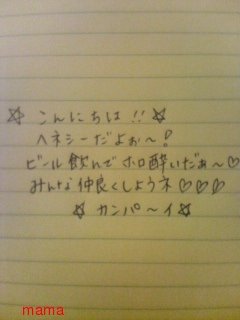 ☆ こんにちは!!☆
ヘネシーだよぉ〜!
ビール飲んでホロ酔いだぁ〜♡
みんな仲良くしようネ♡♡♡
☆カンパ〜イ☆
mama